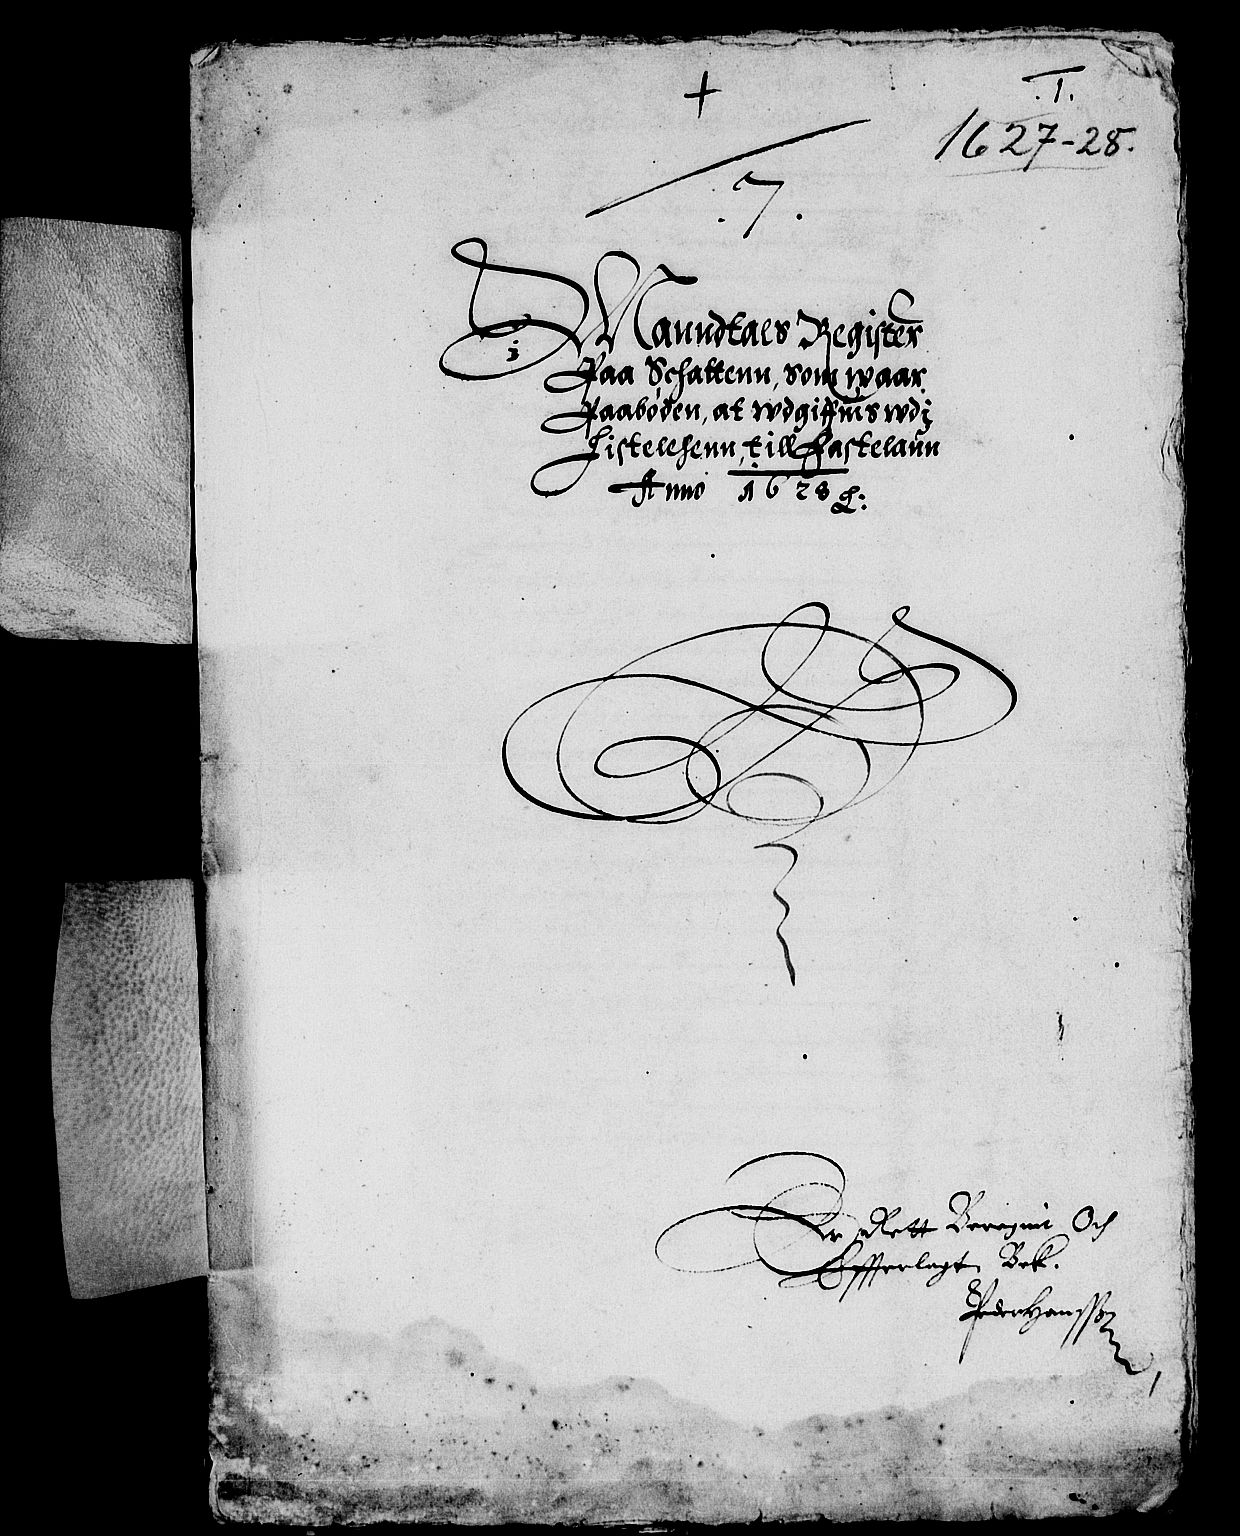 +
.I.
1627-28.
.7.
Manndtals Register
Paa Schattenn, som waar
Paabøden, at wdgiffuis wdj
Listelehenn, till Fastelaũn
Anno 1628
Er Rett Beregnit Och
Offuerlagt Bek.
Peder Hanssen